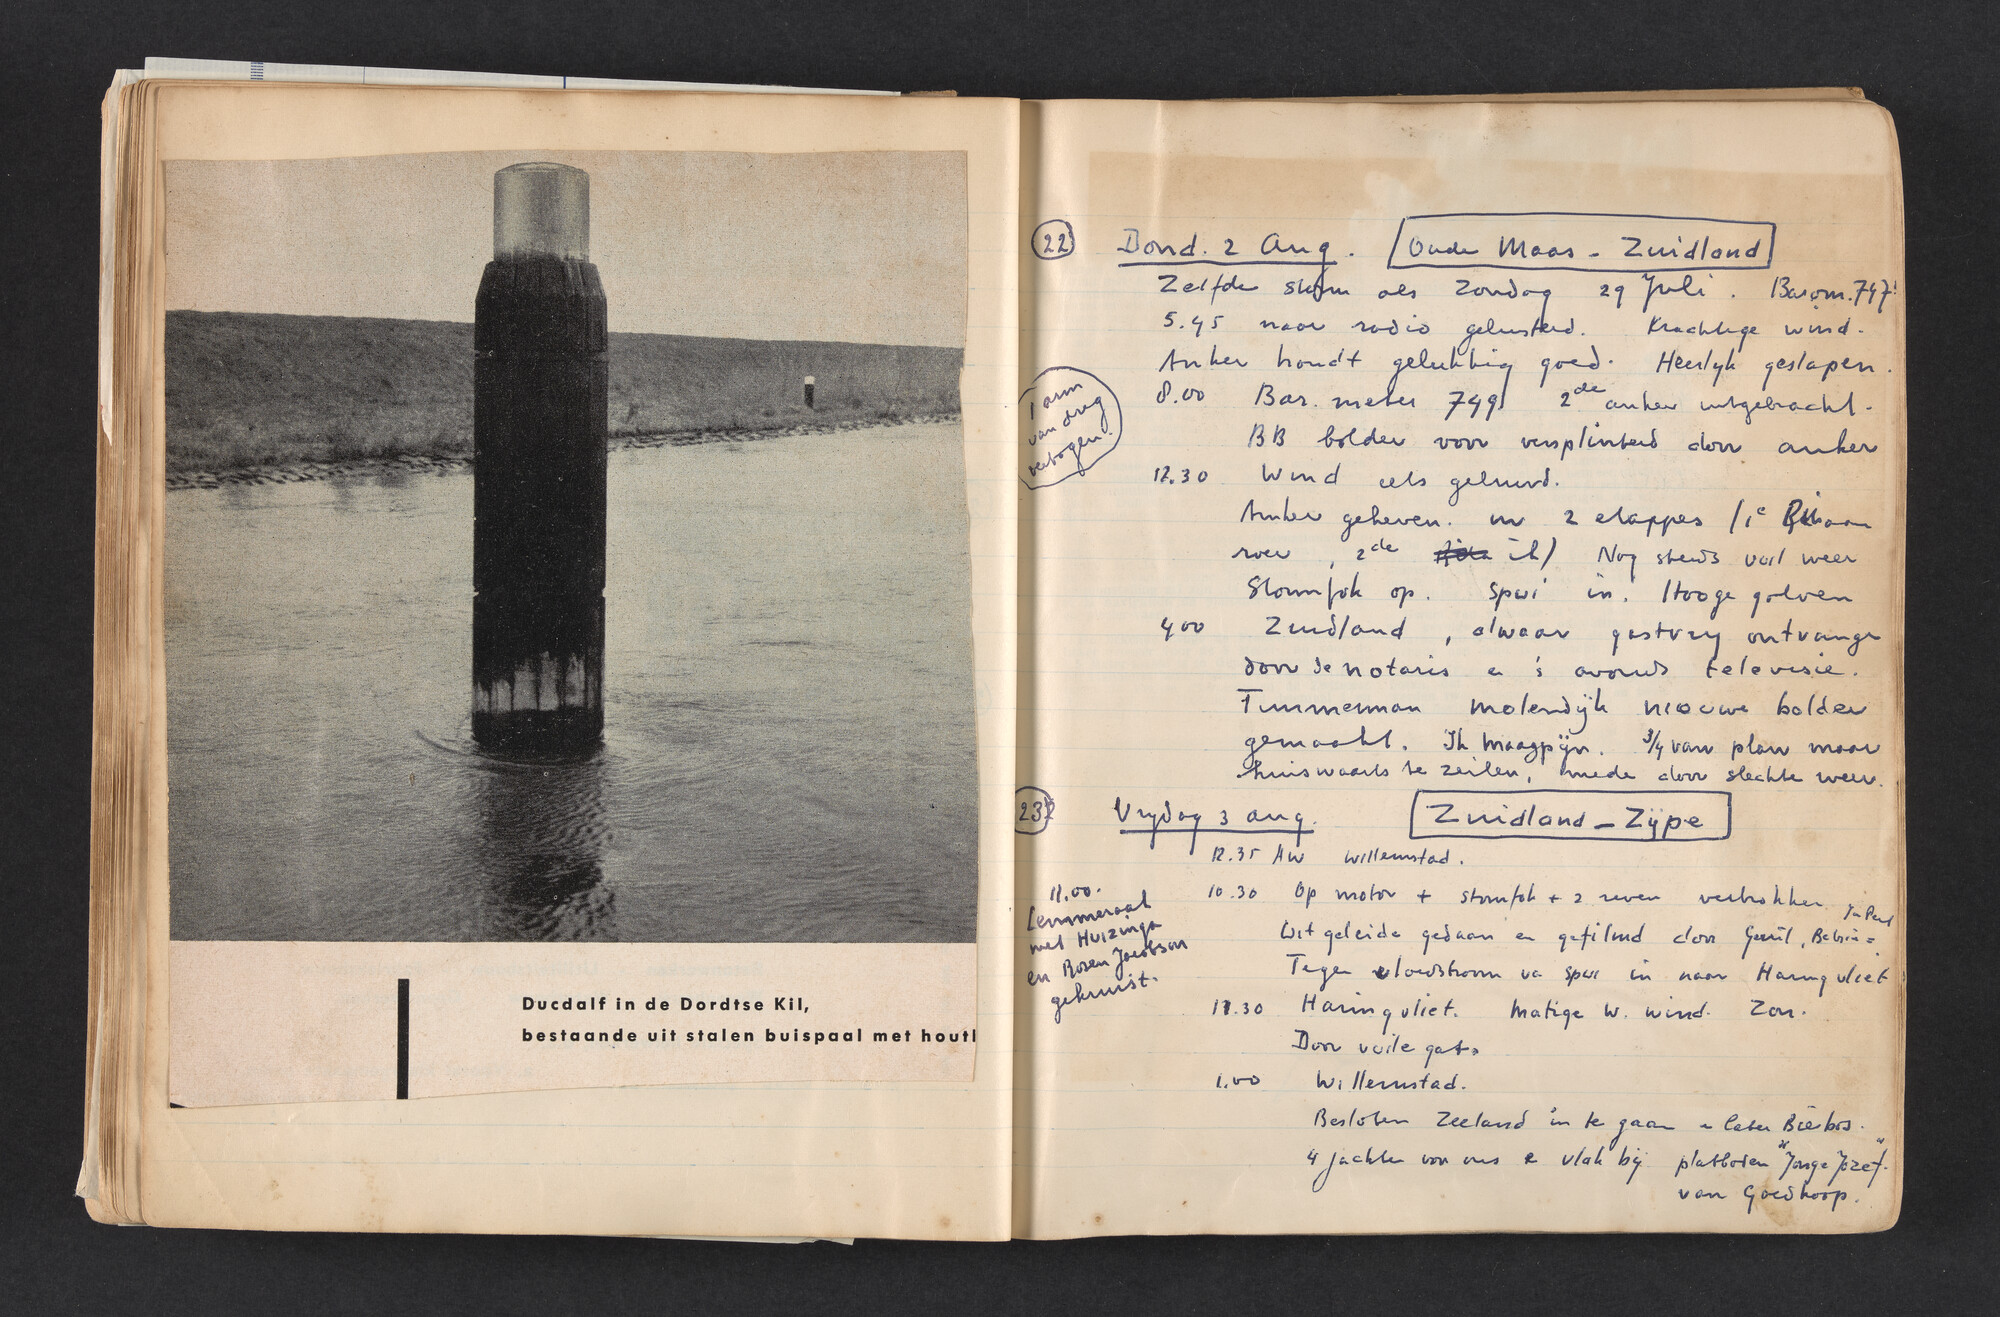 Ducdalf in de Dordtse Kil,
bestaande uit stalen buispaal met houtl
22 Dond. 2 Aug. Oude Maas - Zuidland
Zelfde storm als Zondag 29 Juli. Barom. 747!
5.45 naar radio geluisterd. Krachtige wind.
Anker houdt gelukkig goed. Heerlyk geslapen.
1 arm
van dreg
verbogen.
8.00 Bar. meter 749 2de anker uitgebracht.
BB bolder voor versplinterd door anker
12.30 Wind iets geluwd.
Anker geheven in 2 etappes (1e
roer, 2de ik) Nog steeds vuil weer
Stormfok op. Spui in. Hooge golven
400 Zuidland, alwaar gastvry ontvange
door de notaris e 's avonds televisie.
Timmerman Molendijk nieuwe bolder
gemaakt. Ik maagpijn. 3/4 van plan maar
huiswaarts te zeilen, mede door slechte weer.
23 Vrydag 3 aug. Zuidland - Zijpe
12.35 AW Willemstad.
10.30 Op motor + stormfok + 2 reven vertrokken
Uitgeleide gedaan en gefilmd door
Tegen vloedstroom va Spui in naar Haringvliet
11.00.
Lemmeraak
met Huizinga
en Rosen Jacobson
gekruist.
11.30 Haringvliet. Matige W. wind. Zon.
Door vuile gat.
1.00 Willemstad.
Besloten Zeeland in te gaan e later Biesbos.
4 jachten voor ons e vlak bij platboden "Jonge Jozef"
van Goedkoop.